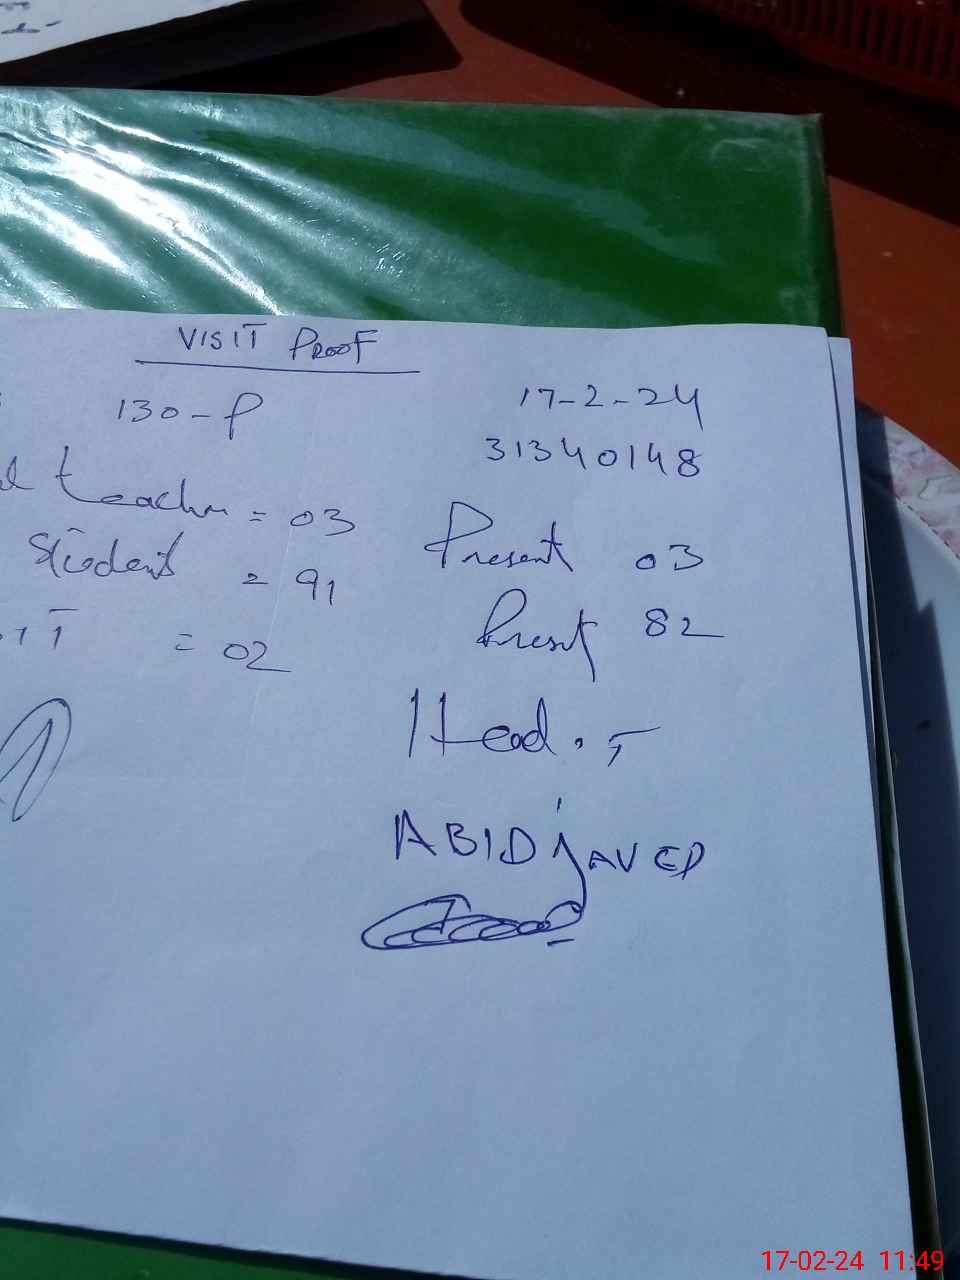 VISIT PROOF
130-P 17-2-24
31340148
teacher = 03 Present 03
Student = 91 Present 82
= 02
Head. T
ABID JAVED
17-02-24 11:49